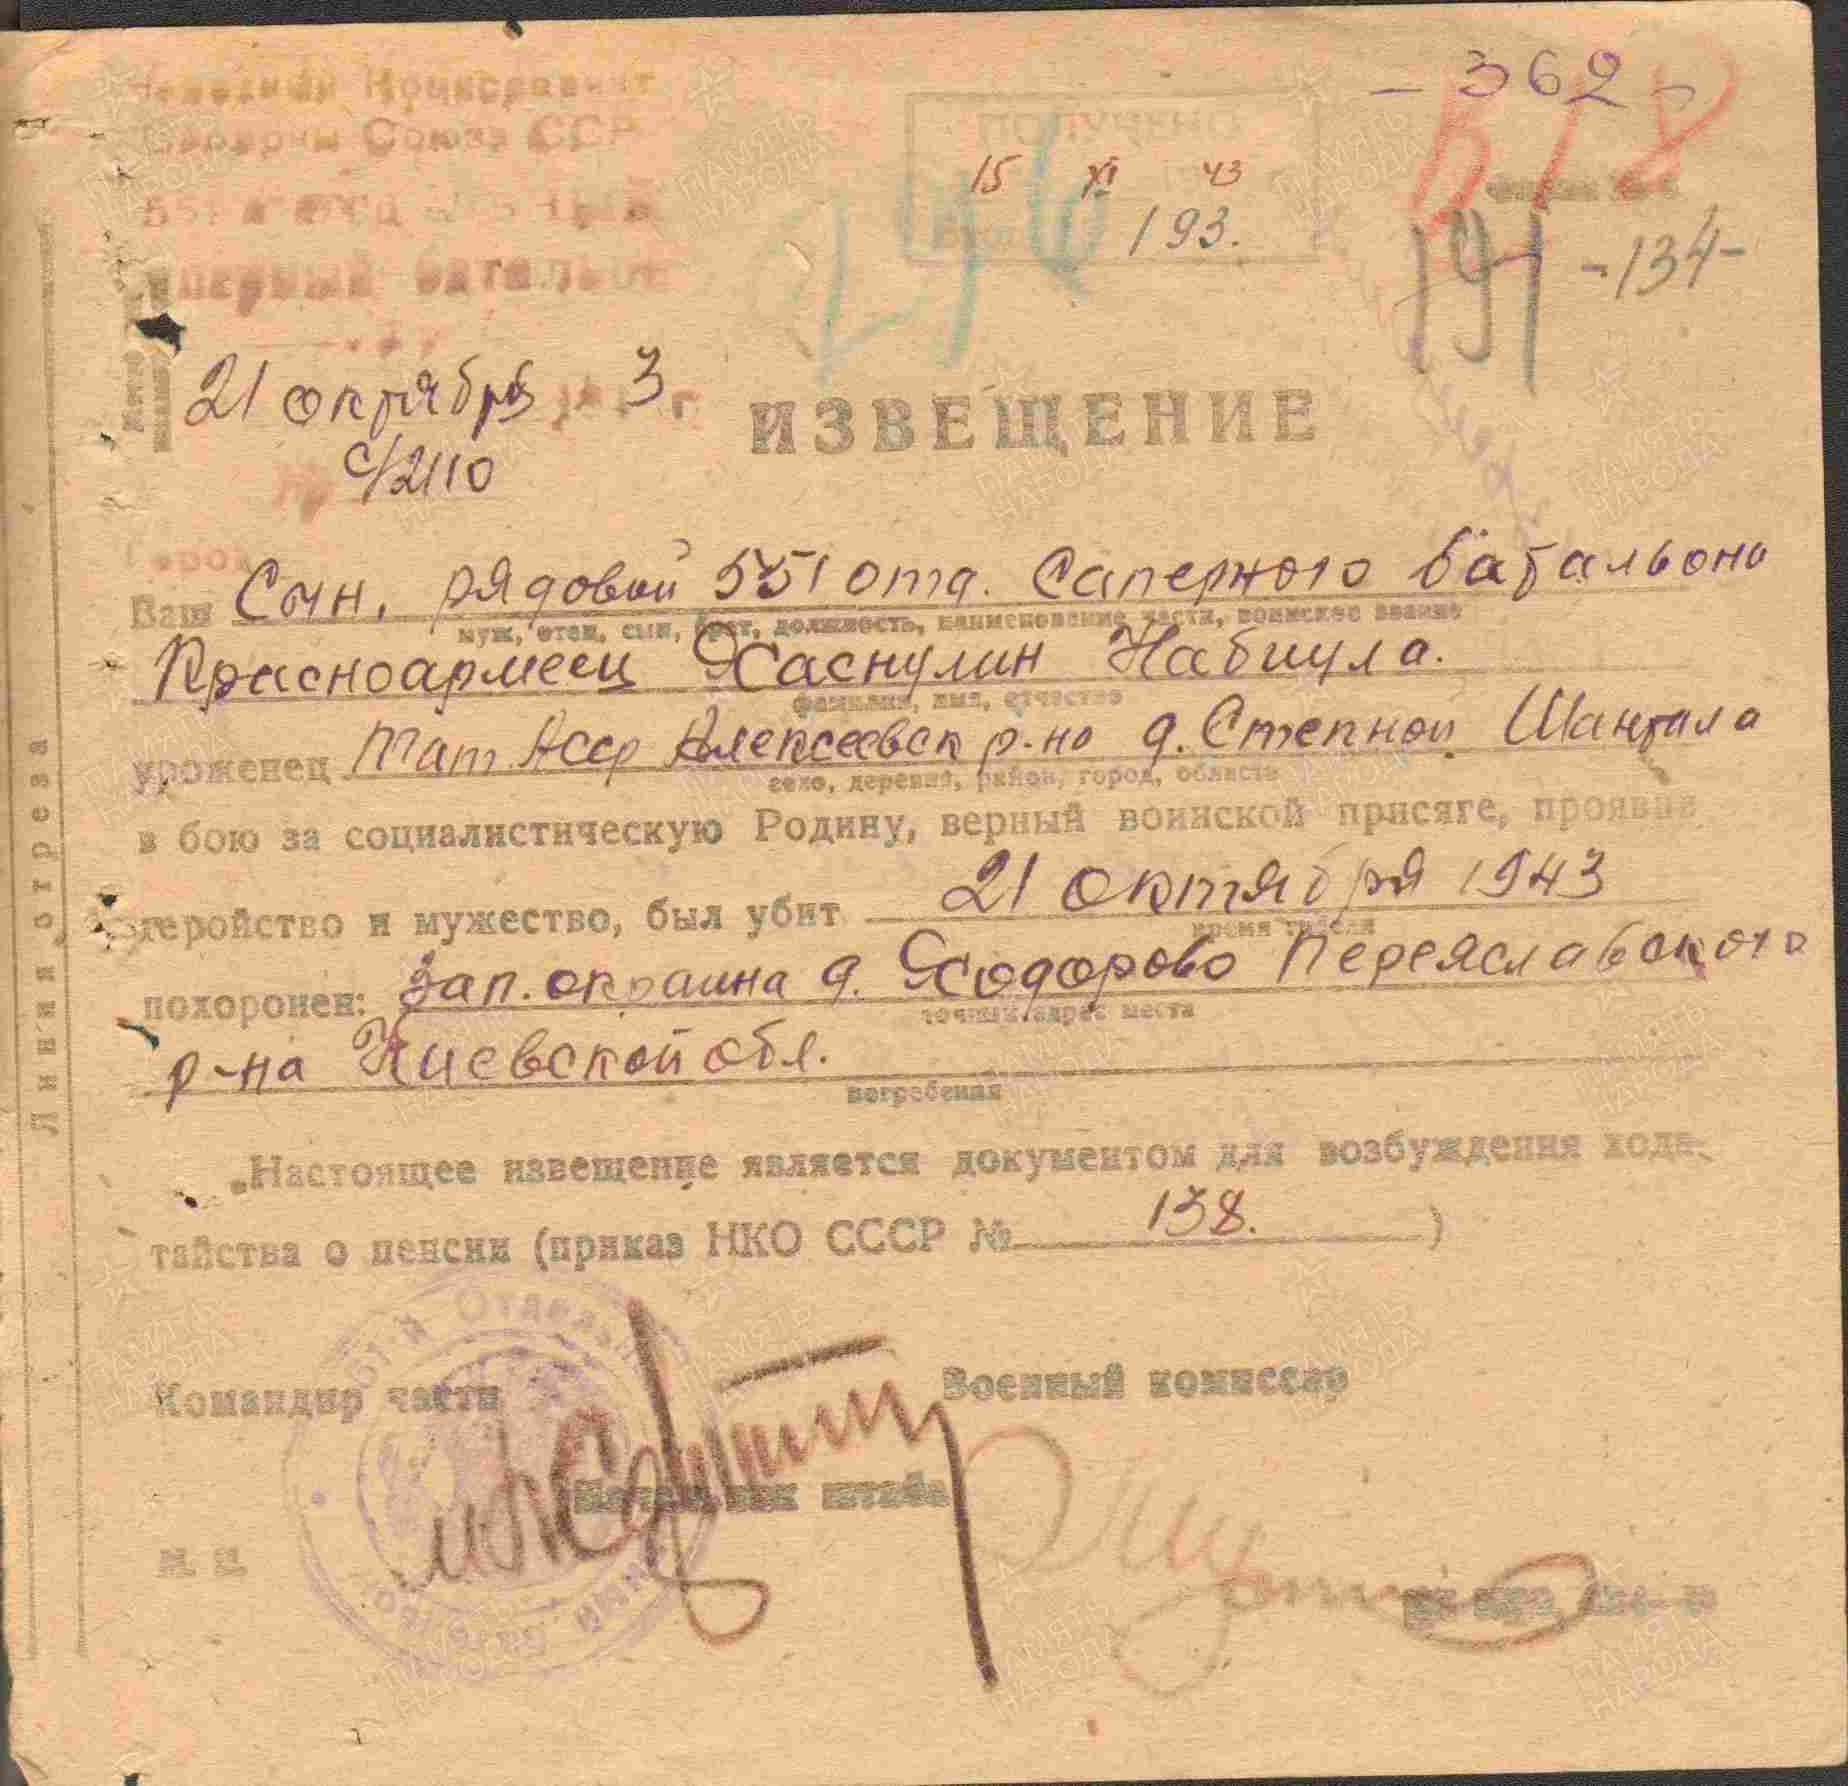 - 362 -
Народный Комиссариат
Обороны Союза ССР
ПОЛУЧЕНО
15 XI 43
193.
191 -134-
батальон
21 октября 3 г.
№ с/2110
ИЗВЕЩЕНИЕ
Ваш Сын, рядовой 551 отд. Саперного батальона
муж, отец, сын, брат, должность, наименование части, воинское звание
Красноармеец Хаснулин Набиула.
фамилия, имя, отчество
уроженец Тат Асср Алексеевск р-но д. Степной Шантала
село, деревня, район, город, область
в бою за социалистическую Родину, верный воинской присяге, проявив
геройство и мужество, был убит 21 октября 1943
время гибели
похоронен: зап. окраина д. Ходорово Переяславского
точный адрес места
р-на Киевской обл.
погребения
Настоящее извещение является документом для возбуждения хода-
тайства о пенсии (приказ НКО СССР № 138. )
Командир части
Военный комиссар
Начальник штаба
М. П.
Линия отреза